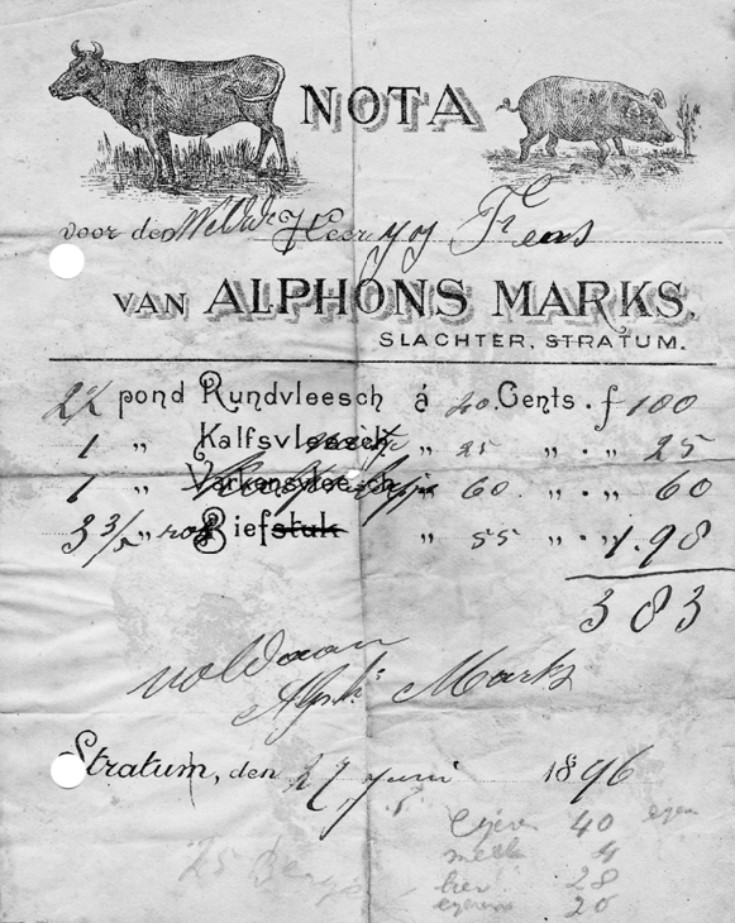 NOTA
voor den Heer
VAN ALPHONS MARKS.
SLACHTER, STRATUM.
2½ pond Rundvleesch á 40 Cents . f 100
1 „ Kalfsvleesch „ 25 „ . „ 25
1 „ Varkensvleesch „ 60. „ . „ 60
3 3/5 „ Biefstuk „ 55 „ . „ 1.98
383
voldaan
Alph. Marks
Stratum, den 27 Juni 1896
40
melk 4
28
20